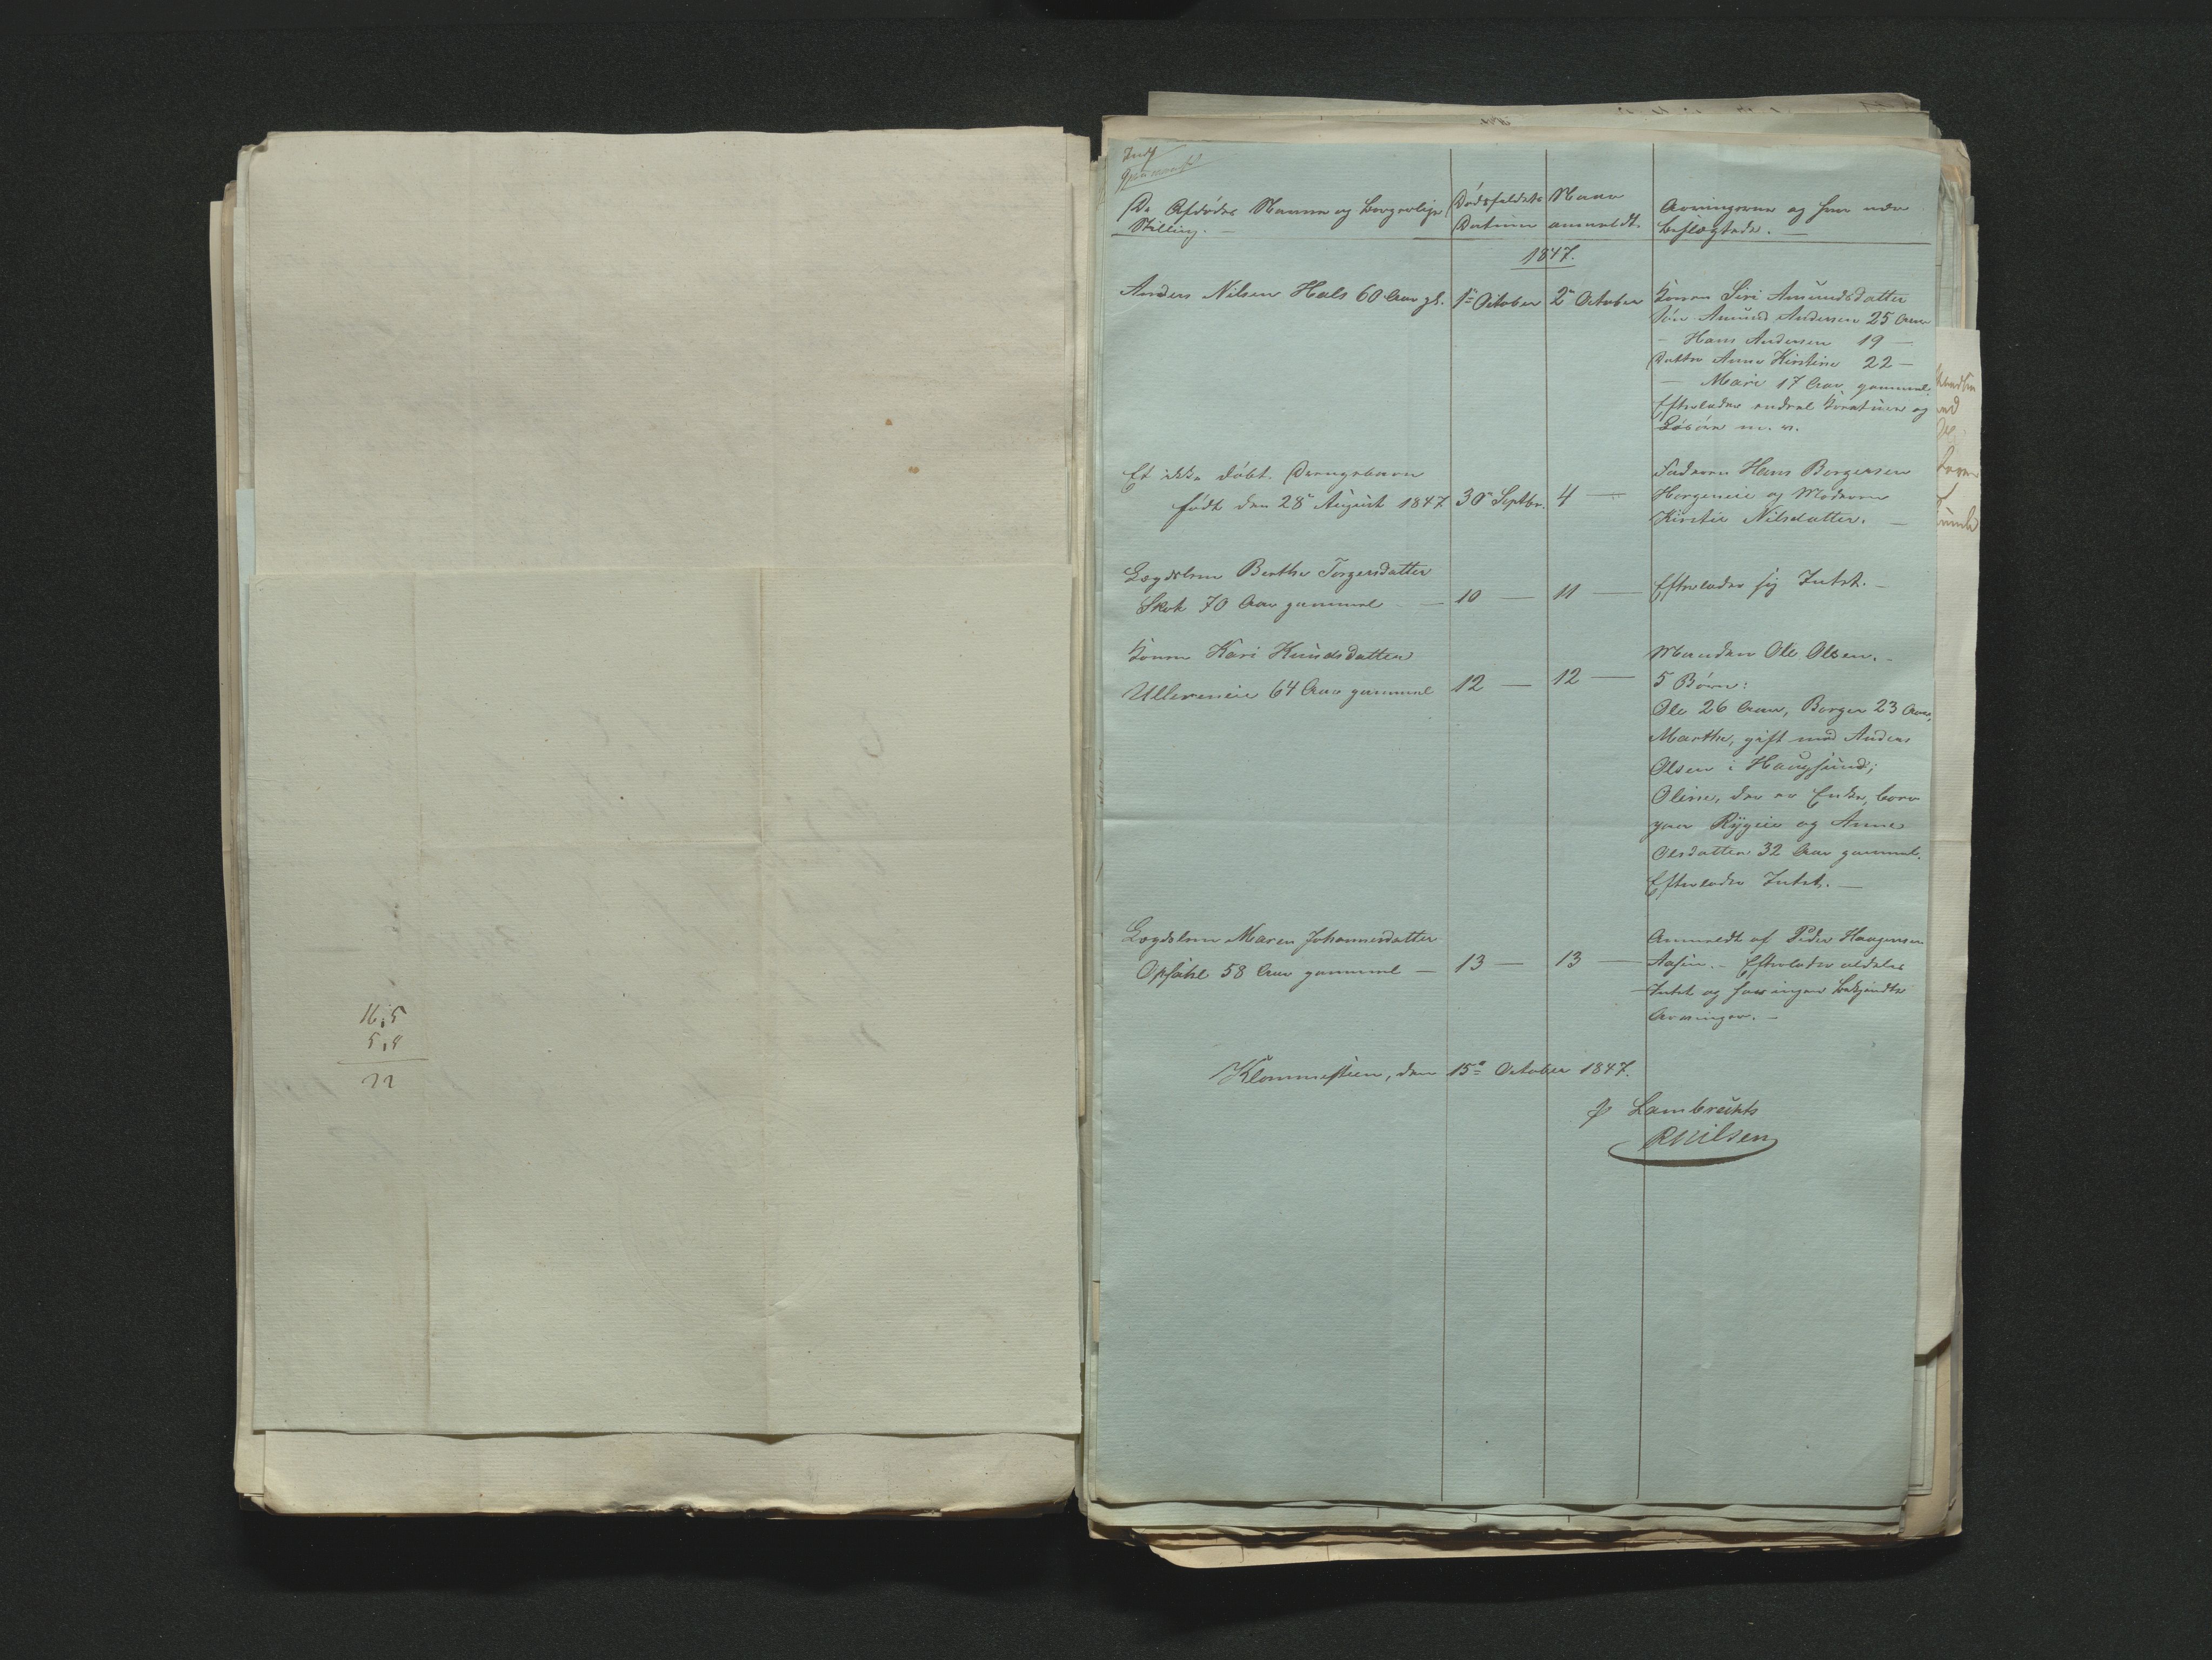 16,5
5,8
22
De Afdødes Navne og borgerlige
Stilling. —
Dødsfaldets
Datum
Naar
anmeldt.
Arvingerne og hvor nær
beslægtede. —
1847.
Anders Nilsen Hals 60 Aar gl.
1ste October
2den October
Konen Siri Amundsdatter
Søn Amund Andersen 25 Aar
— Hans Andersen 19 —
Datter Anne Kirstine 22 —
— Mari 17 Aar gammel.
Efterlader endeel Kreaturer og
Løsøre m. v.
Et ikke døbt Drengebarn
født den 28de August 1847
30te Septbr.
4 —
Faderen Hans Borgersen
Horgeneie og Moderen
Kirstie Nilsdatter. —
Lægdslem Berthe Torgersdatter
Skok 70 Aar gammel —
10 —
11 —
Efterlader sig Intet. —
Konen Kari Knudsdatter
Ullereneie 64 Aar gammel
12 —
12 —
Manden Ole Olsen. —
5 Børn:
Ole 26 Aar, Borger 23 Aar,
Marthe, gift med Anders
Olsen i Haugsund;
Oline, der er Enke, boer
paa Rygeie og Anne
Olsdatter 32 Aar gammel.
Efterlader Intet. —
Lægdslem Maren Johannesdatter
Opsahl 58 Aar gammel —
13 —
13 —
Anmeldt af Peder Haagensen
Aasen. — Efterlader aldeles
Intet og har ingen bekjendte
Arvinger. —
Klommesteen, den 15de October 1847.
Lambrechts
RNilsen